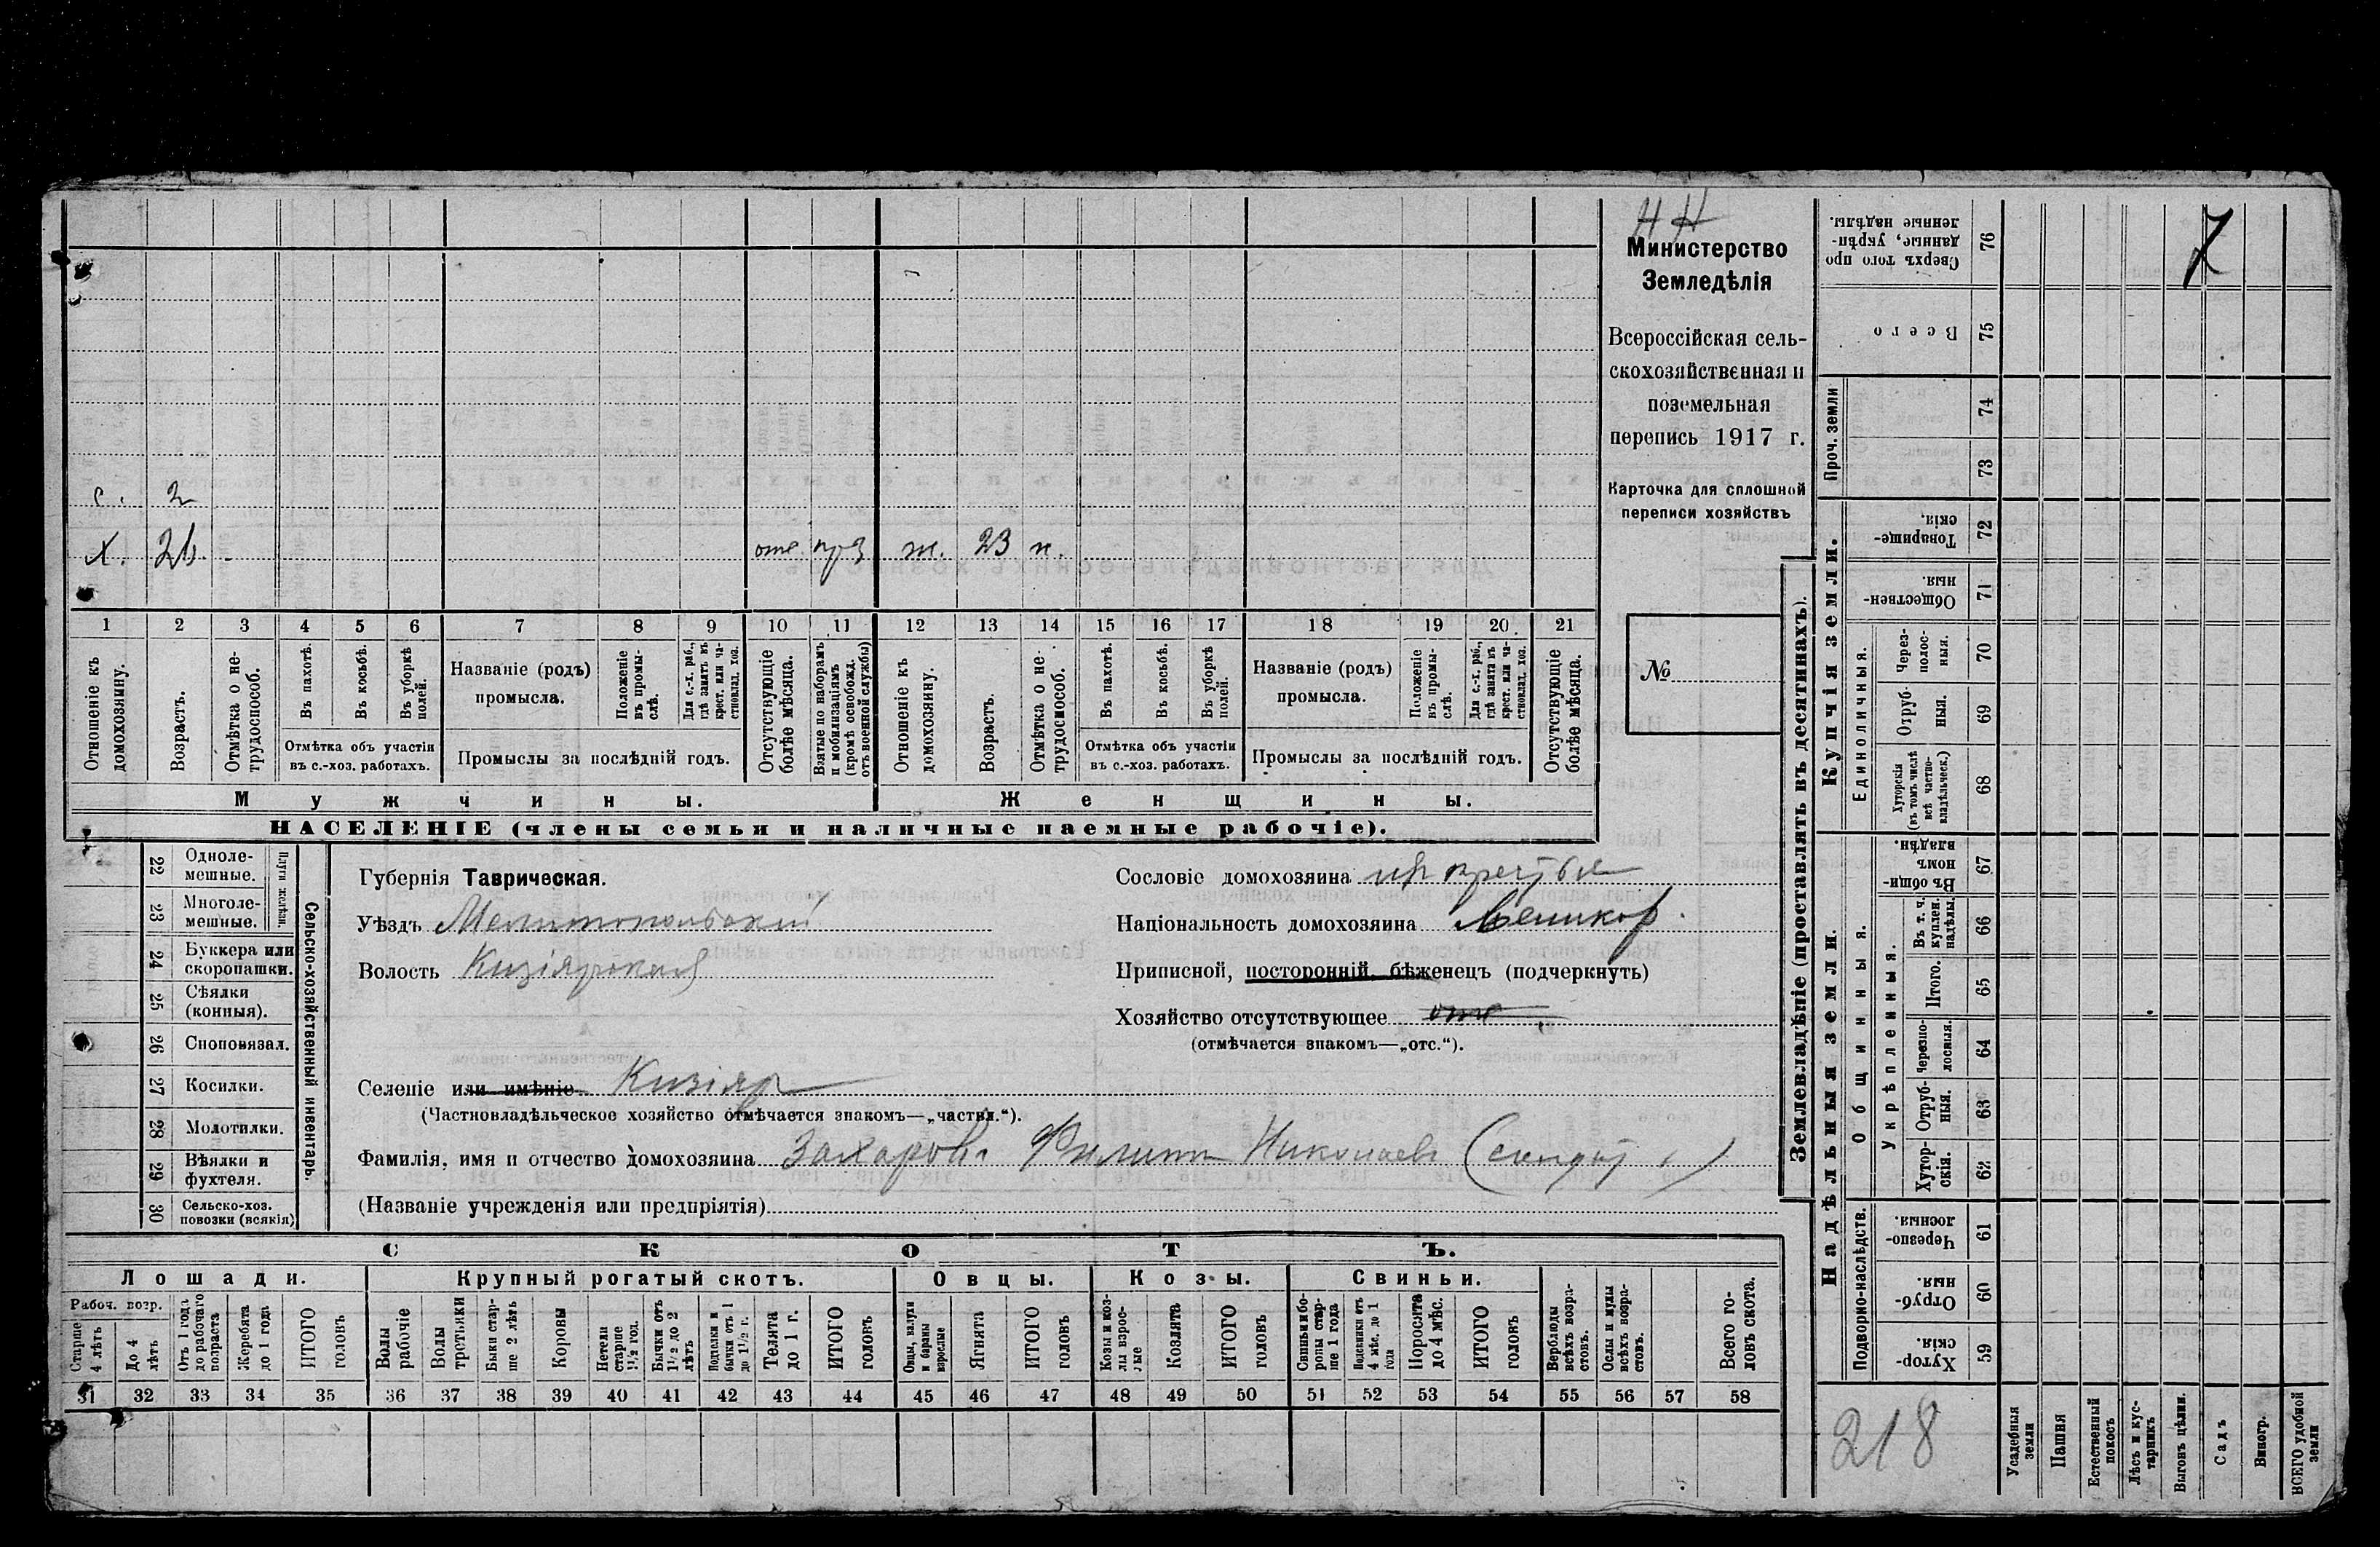 НН
Министерство
Земледѣлія
Всероссійская сель-
скохозяйственная и
поземельная
перепись 1917 г.
Карточка для сплошной
переписи хозяйствъ
№
7
с. 2
х. 26. отс. ж. 23 н.
1 2 3 4 5 6 7 8 9 10 11 12 13 14 15 16 17 18 19 20 21
Отношеніе къ домохозяину.
Возрастъ.
Отмѣтка о не-трудоспособ.
Въ пахотѣ.
Въ косьбѣ.
Въ уборкѣ полей.
Отмѣтка объ участіи
въ с.-хоз. работахъ.
Названіе (родъ)
промысла.
Положеніе въ промы-слѣ.
Для с.-х. раб., гдѣ занятъ въ крест. или ча-стновлад. хоз.
Промыслы за послѣдній годъ.
Отсутствующіе болѣе мѣсяца.
Взятые по наборамъ и мобилизаціямъ (кромѣ освобожд. отъ военной службы)
Отношеніе къ домохозяину.
Возрастъ.
Отмѣтка о не-трудоспособ.
Въ пахотѣ.
Въ косьбѣ.
Въ уборкѣ полей.
Отмѣтка объ участіи
въ с.-хоз. работахъ.
Названіе (родъ)
промысла.
Положеніе въ промы-слѣ.
Для с.-х. раб., гдѣ занята въ крест. или ча-стновлад. хоз.
Промыслы за послѣдній годъ.
Отсутствующіе болѣе мѣсяца.
Мужчины.
Женщины.
НАСЕЛЕНІЕ (члены семьи и наличные наемные рабочіе).
Сельско-хозяйственный инвентарь.
22 Одноле-мешные.
23 Многоле-мешные.
24 Буккера или скоропашки.
25 Сѣялки (конныя).
26 Сноповязал.
27 Косилки.
28 Молотилки.
29 Вѣялки и фухтеля.
30 Сельско-хоз. повозки (всякія)
Губернія Таврическая.
Уѣздъ Мелитопольскій
Волость Кизіярская
Селеніе или имѣніе Кизіяр
(Частновладѣльческое хозяйство отмѣчается знакомъ—„частвл.“).
Фамилія, имя и отчество домохозяина Захаровъ Филипп Николаев
(Названіе учрежденія или предпріятія)
Сословіе домохозяина
Національность домохозяина Великор.
Приписной, посторонній, бѣженецъ (подчеркнуть)
Хозяйство отсутствующее отс
(отмѣчается знакомъ—„отс.“).
СКОТЪ.
Лошади.
Крупный рогатый скотъ.
Овцы.
Козы.
Свиньи.
Рабоч. возр.
Старше 4 лѣтъ
До 4 лѣтъ
Отъ 1 года до рабочаго возраста
Жеребята до 1 года
ИТОГО головъ
Волы рабочіе
Волы третьяки
Быки стар-ше 2 лѣтъ
Коровы
Нетели старше 1½ год.
Бычки отъ 1½ до 2 лѣтъ
Подтелки и бычки отъ 1 до 1½ г.
Телята до 1 г.
ИТОГО головъ
Овцы, валухи и бараны взрослые
Ягнята
ИТОГО головъ
Козы и коз-лы взрос-лые
Козлята
ИТОГО головъ
Свиньи и бо-ровы стар-ше 1 года
Подсвинки отъ 4 мѣс. до 1 года
Поросята до 4 мѣс.
ИТОГО головъ
Верблюды всѣхъ возра-стовъ.
Ослы и мулы всѣхъ возра-стовъ.
Всего го-ловъ скота.
31 32 33 34 35 36 37 38 39 40 41 42 43 44 45 46 47 48 49 50 51 52 53 54 55 56 57 58
Землевладѣніе (проставлять въ десятинахъ).
Купчія земли.
Надѣльныя земли.
Сверхъ того про данные, укрѣп-ленные надѣлы. 76
Всего 75
Проч. земли 74
73
Товарище-скія. 72
Обществен-ныя. 71
Единоличныя.
Через-полос-ныя. 70
Отруб-ныя. 69
Хуторскія (въ томъ числѣ всѣ частно-владѣльческ.) 68
Общинныя.
Въ общин-номъ владѣн. 67
Укрѣпленныя.
Въ т. ч. куплен. надѣлы. 66
Итого. 65
Черезпо-лосныя. 64
Отруб-ныя. 63
Хутор-скія. 62
Подворно-наслѣдств.
Черезпо-лосныя. 61
Отруб-ныя 60
Хутор-скія 59
218
Усадебныя земли
Пашня
Естественный покосъ
Лѣсъ и кус-тарникъ
Выгонъ цѣлин.
Садъ
Виногр.
ВСЕГО удобной земли